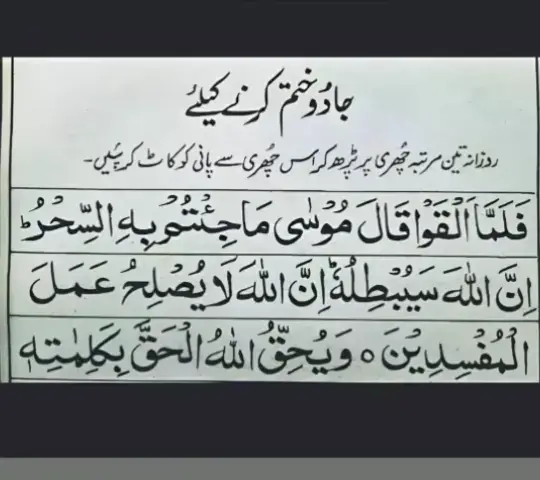 جادو ختم کرنے کیلئے
روزانہ تین مرتبہ چھری پر پڑھ کر اس چھری سے پانی کو کاٹ کر پئیں۔
فَلَمَّآ اَلْقَوْا قَالَ مُوْسٰى مَا جِئْتُمْ بِهِ السِّحْرُ ؕ
اِنَّ اللّٰهَ سَيُبْطِلُهٗ ؕ اِنَّ اللّٰهَ لَا يُصْلِحُ عَمَلَ
الْمُفْسِدِيْنَ ○ وَيُحِقُّ اللّٰهُ الْحَقَّ بِكَلِمٰتِهٖ